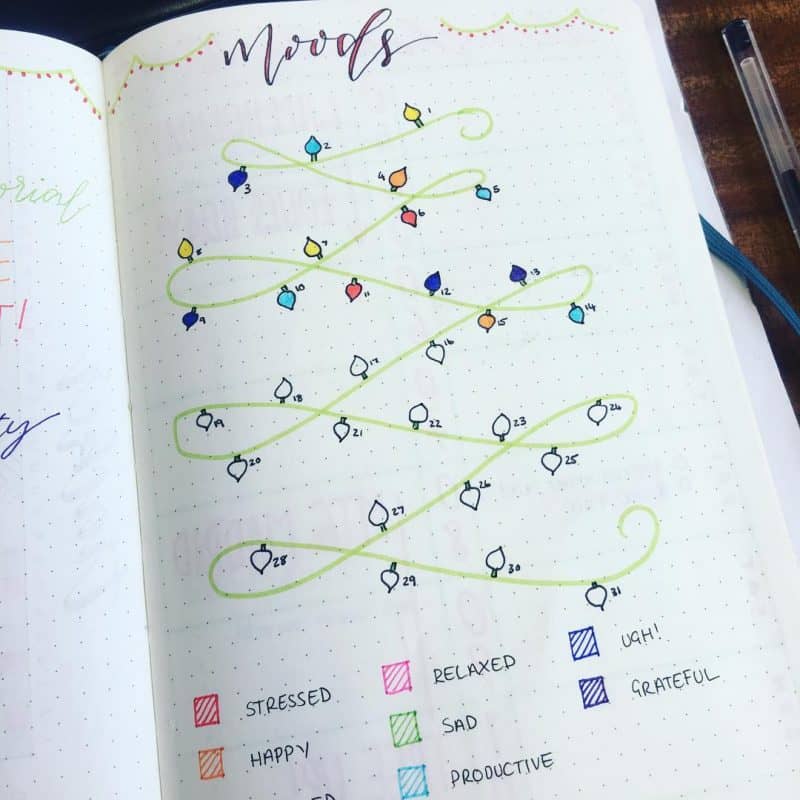 Moods
1
2
3
4
5
6
7
8
9
10
11
12
13
14
15
16
17
18
19
20
21
22
23
24
25
26
27
28
29
30
31
orial
T!
ty
STRESSED
HAPPY
RELAXED
SAD
PRODUCTIVE
UGH!
GRATEFUL